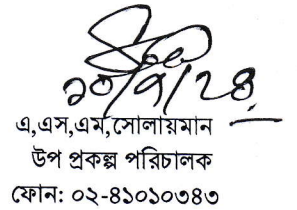 ১০/৭/২৪
এ,এস,এম,সোলায়মান
উপ প্রকল্প পরিচালক
ফোন: ০২-৪১০১০৩৪৩